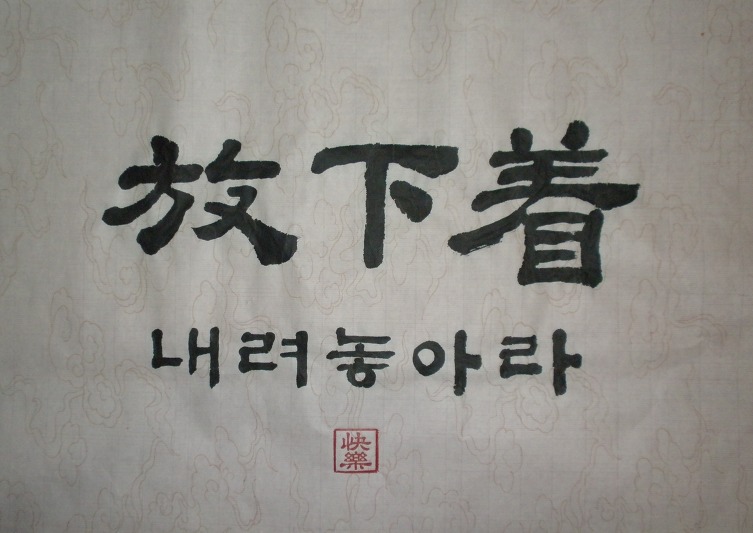 放下着
내려놓아라
快樂